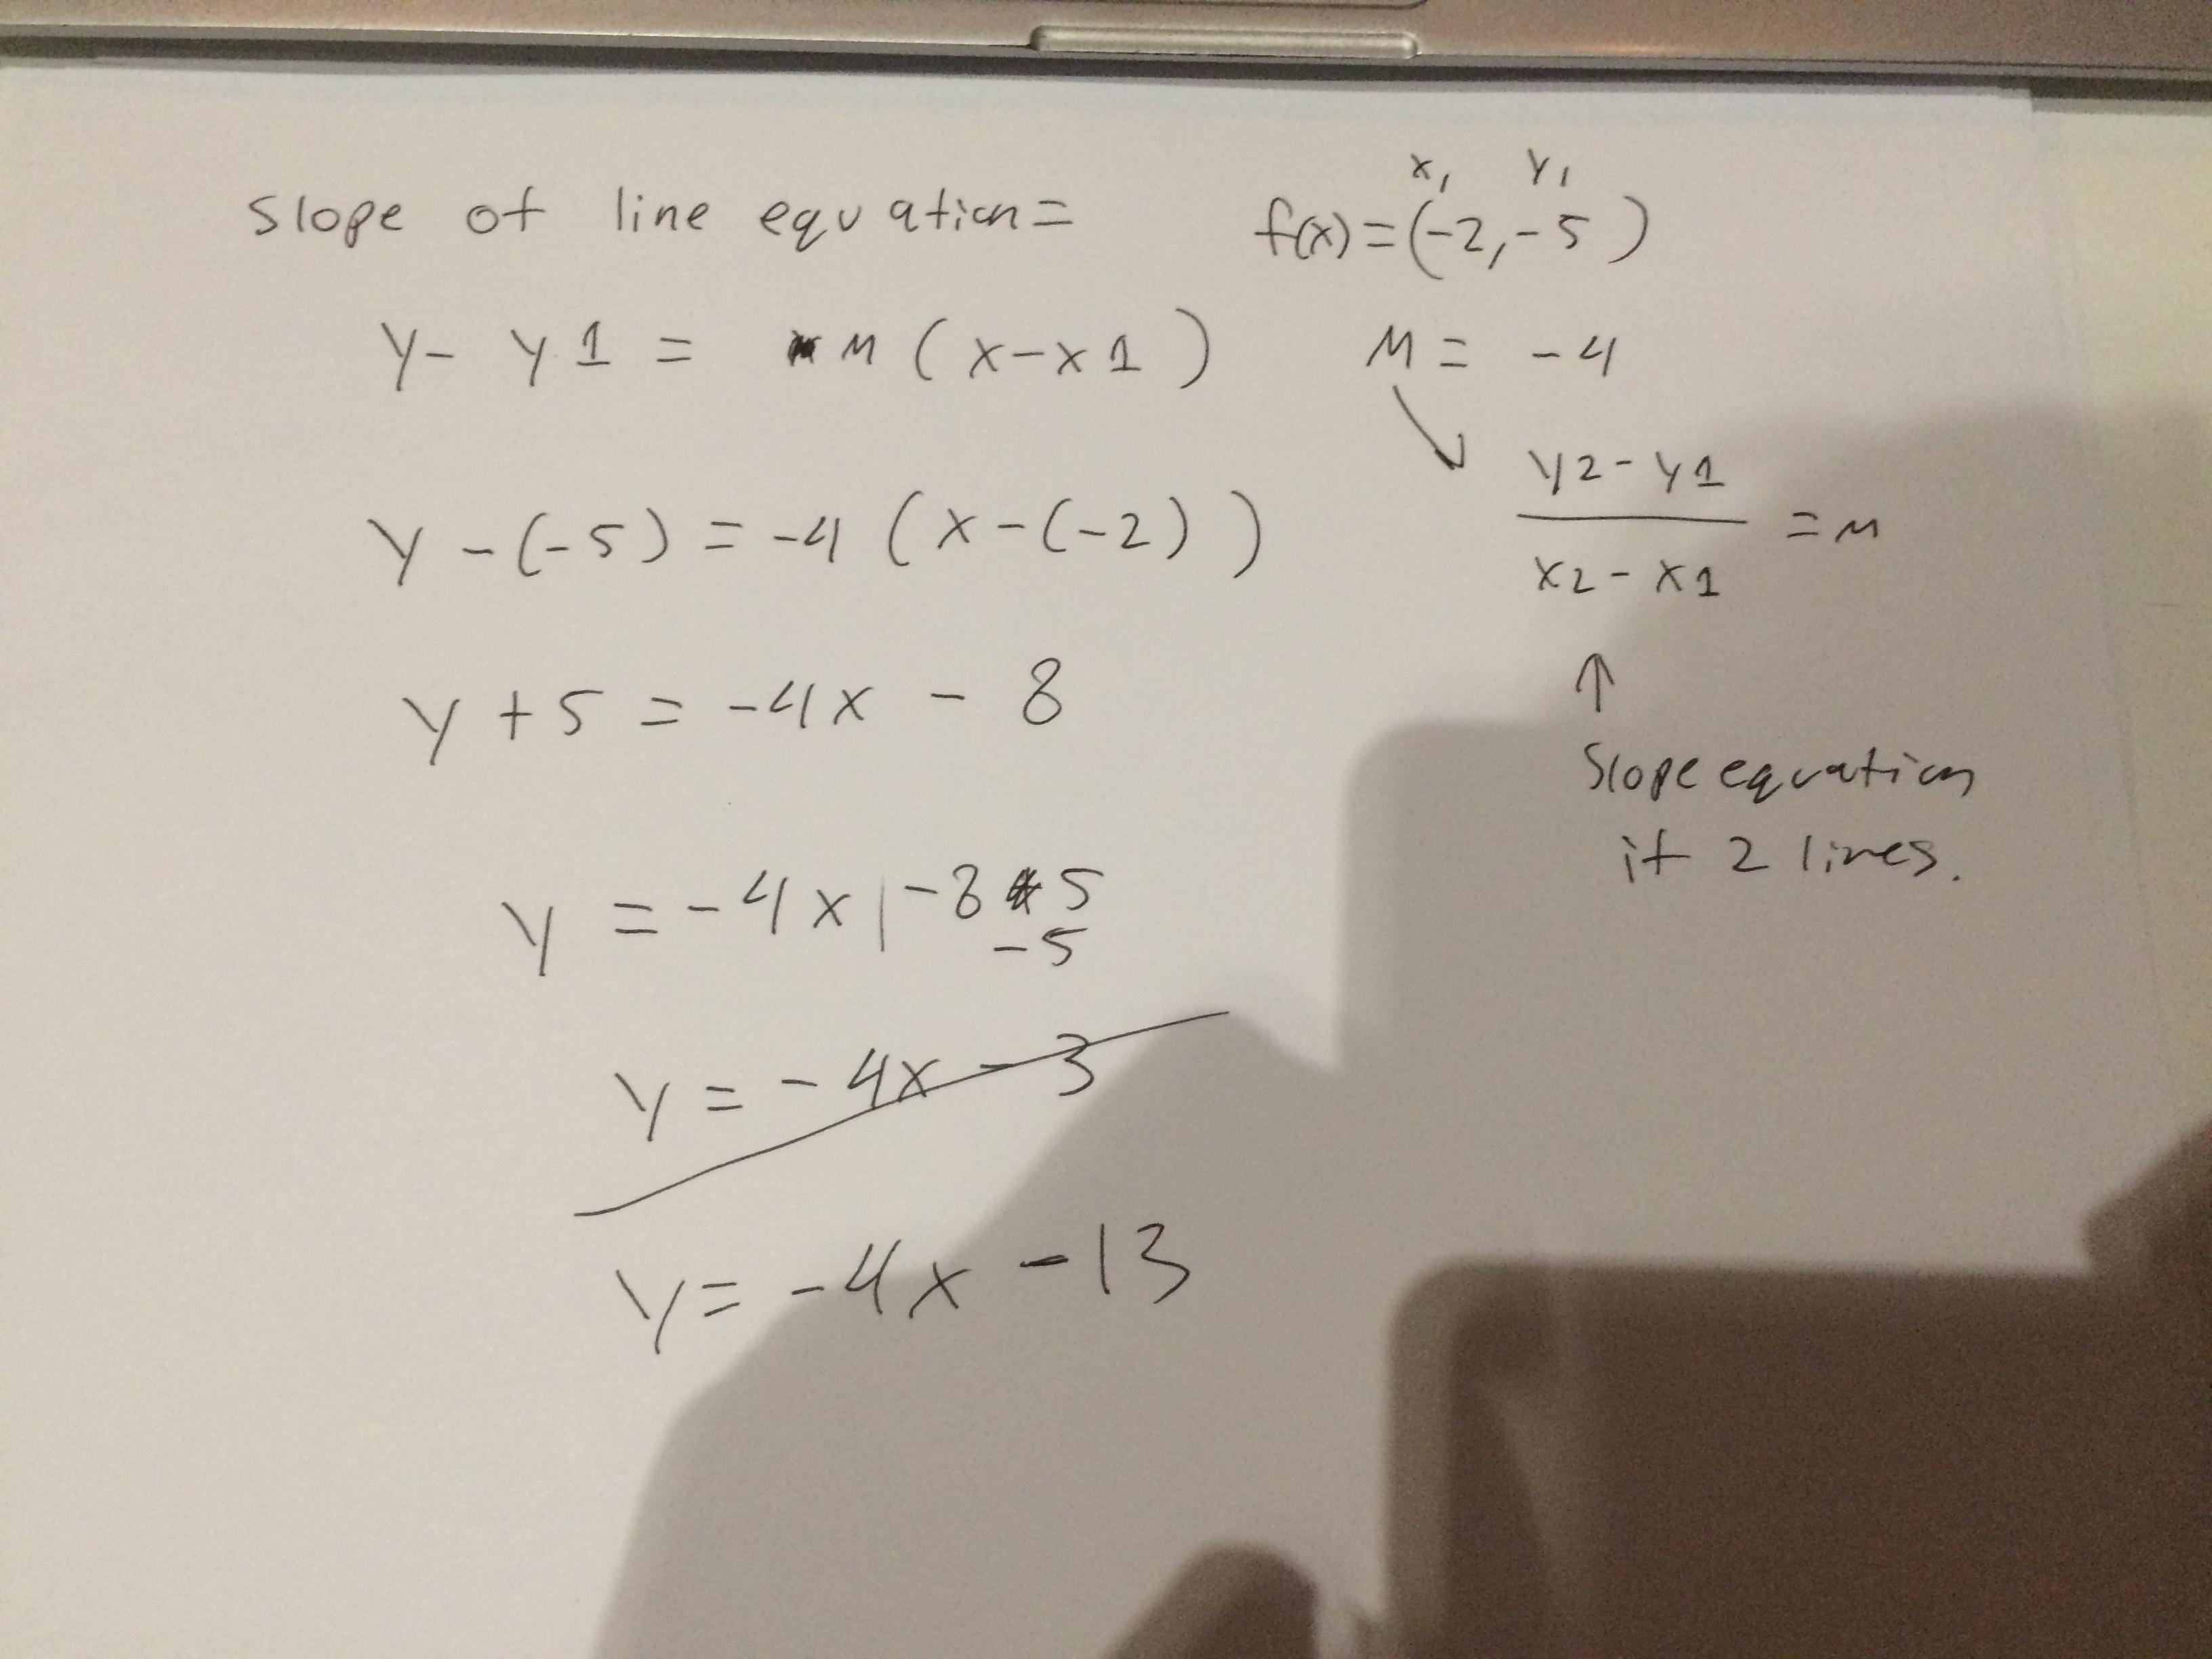 slope of line equation=
y - y1 = m (x-x1)
y -(-5) = -4 (x-(-2))
y +5 = -4x - 8
y = -4x -8 5
-5
y = -4x - 3
y = -4x -13
x1 y1
f(x)=(-2,-5)
M = -4
y2 - y1
= m
x2 - x1
↑
Slope equation
if 2 lines.